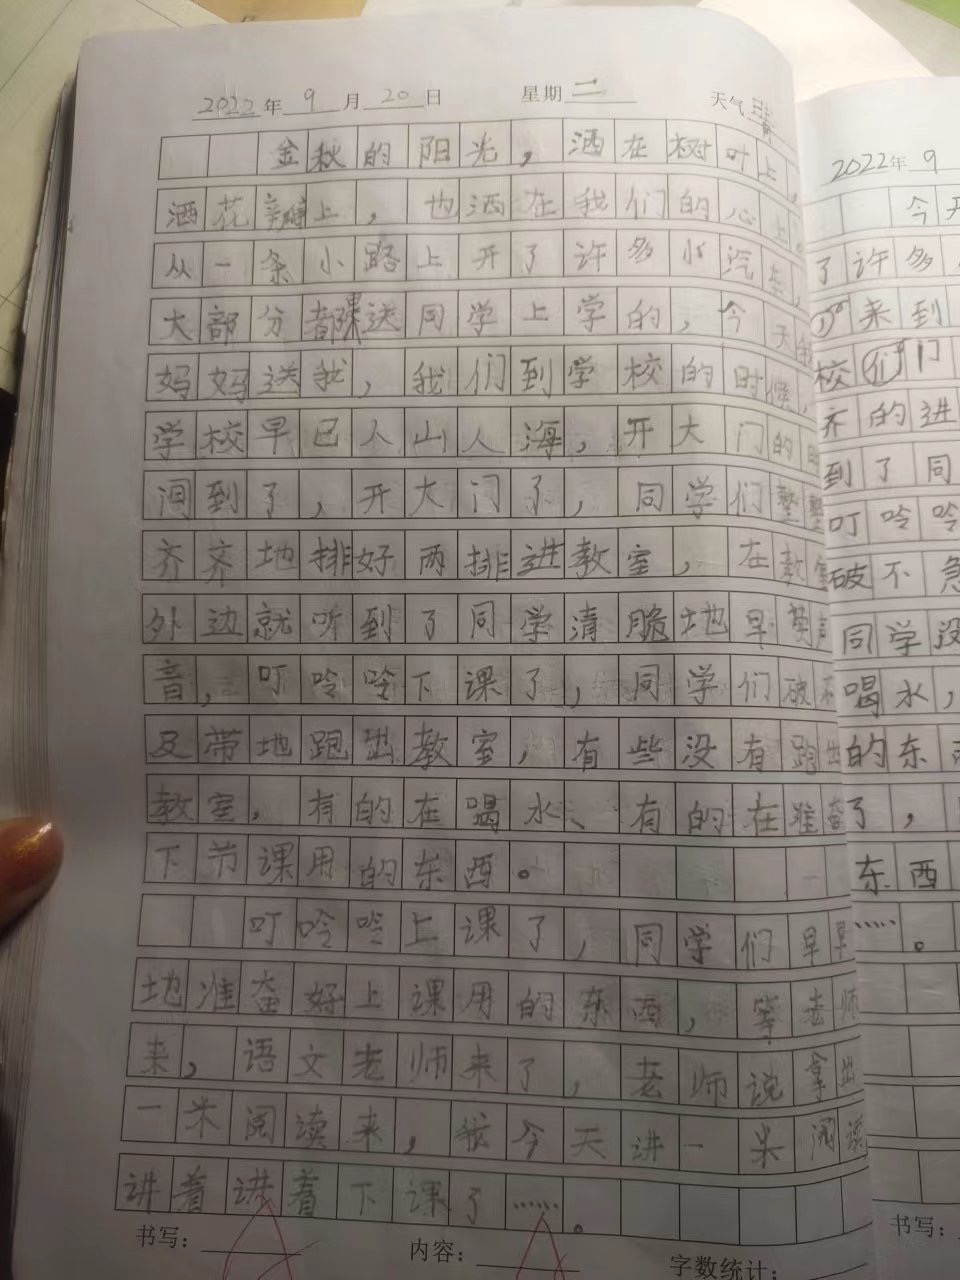 2022年 9 月 20 日 星期 二 天气 晴
金秋的阳光，洒在树叶上，
洒花瓣上，也洒在我们的心上。
从一条小路上开了许多小汽车，
大部分都送同学上学的，今天我
妈妈送我，我们到学校的时候，
学校早已人山人海，开大门的时
间到了，开大门了，同学们整整
齐齐地排好两排进教室，在教室
外边就听到了同学清脆地早读声
音，叮呤呤下课了，同学们破不
及带地跑出教室，有些没有跑出
教室，有的在喝水、有的在准备
下节课用的东西。
叮呤呤上课了，同学们早早
地准备好上课用的东西，等老师
来，语文老师来了，老师说拿出
一米阅读来，我今天讲一米阅读
讲着讲着下课了……。
书写： 内容： 字数统计：
2022年 9
今天
了许多
来到
校 们 门
齐的进
到了同
叮呤呤
破不急
同学没
喝水，
的东西
了，
东西
……。
书写：